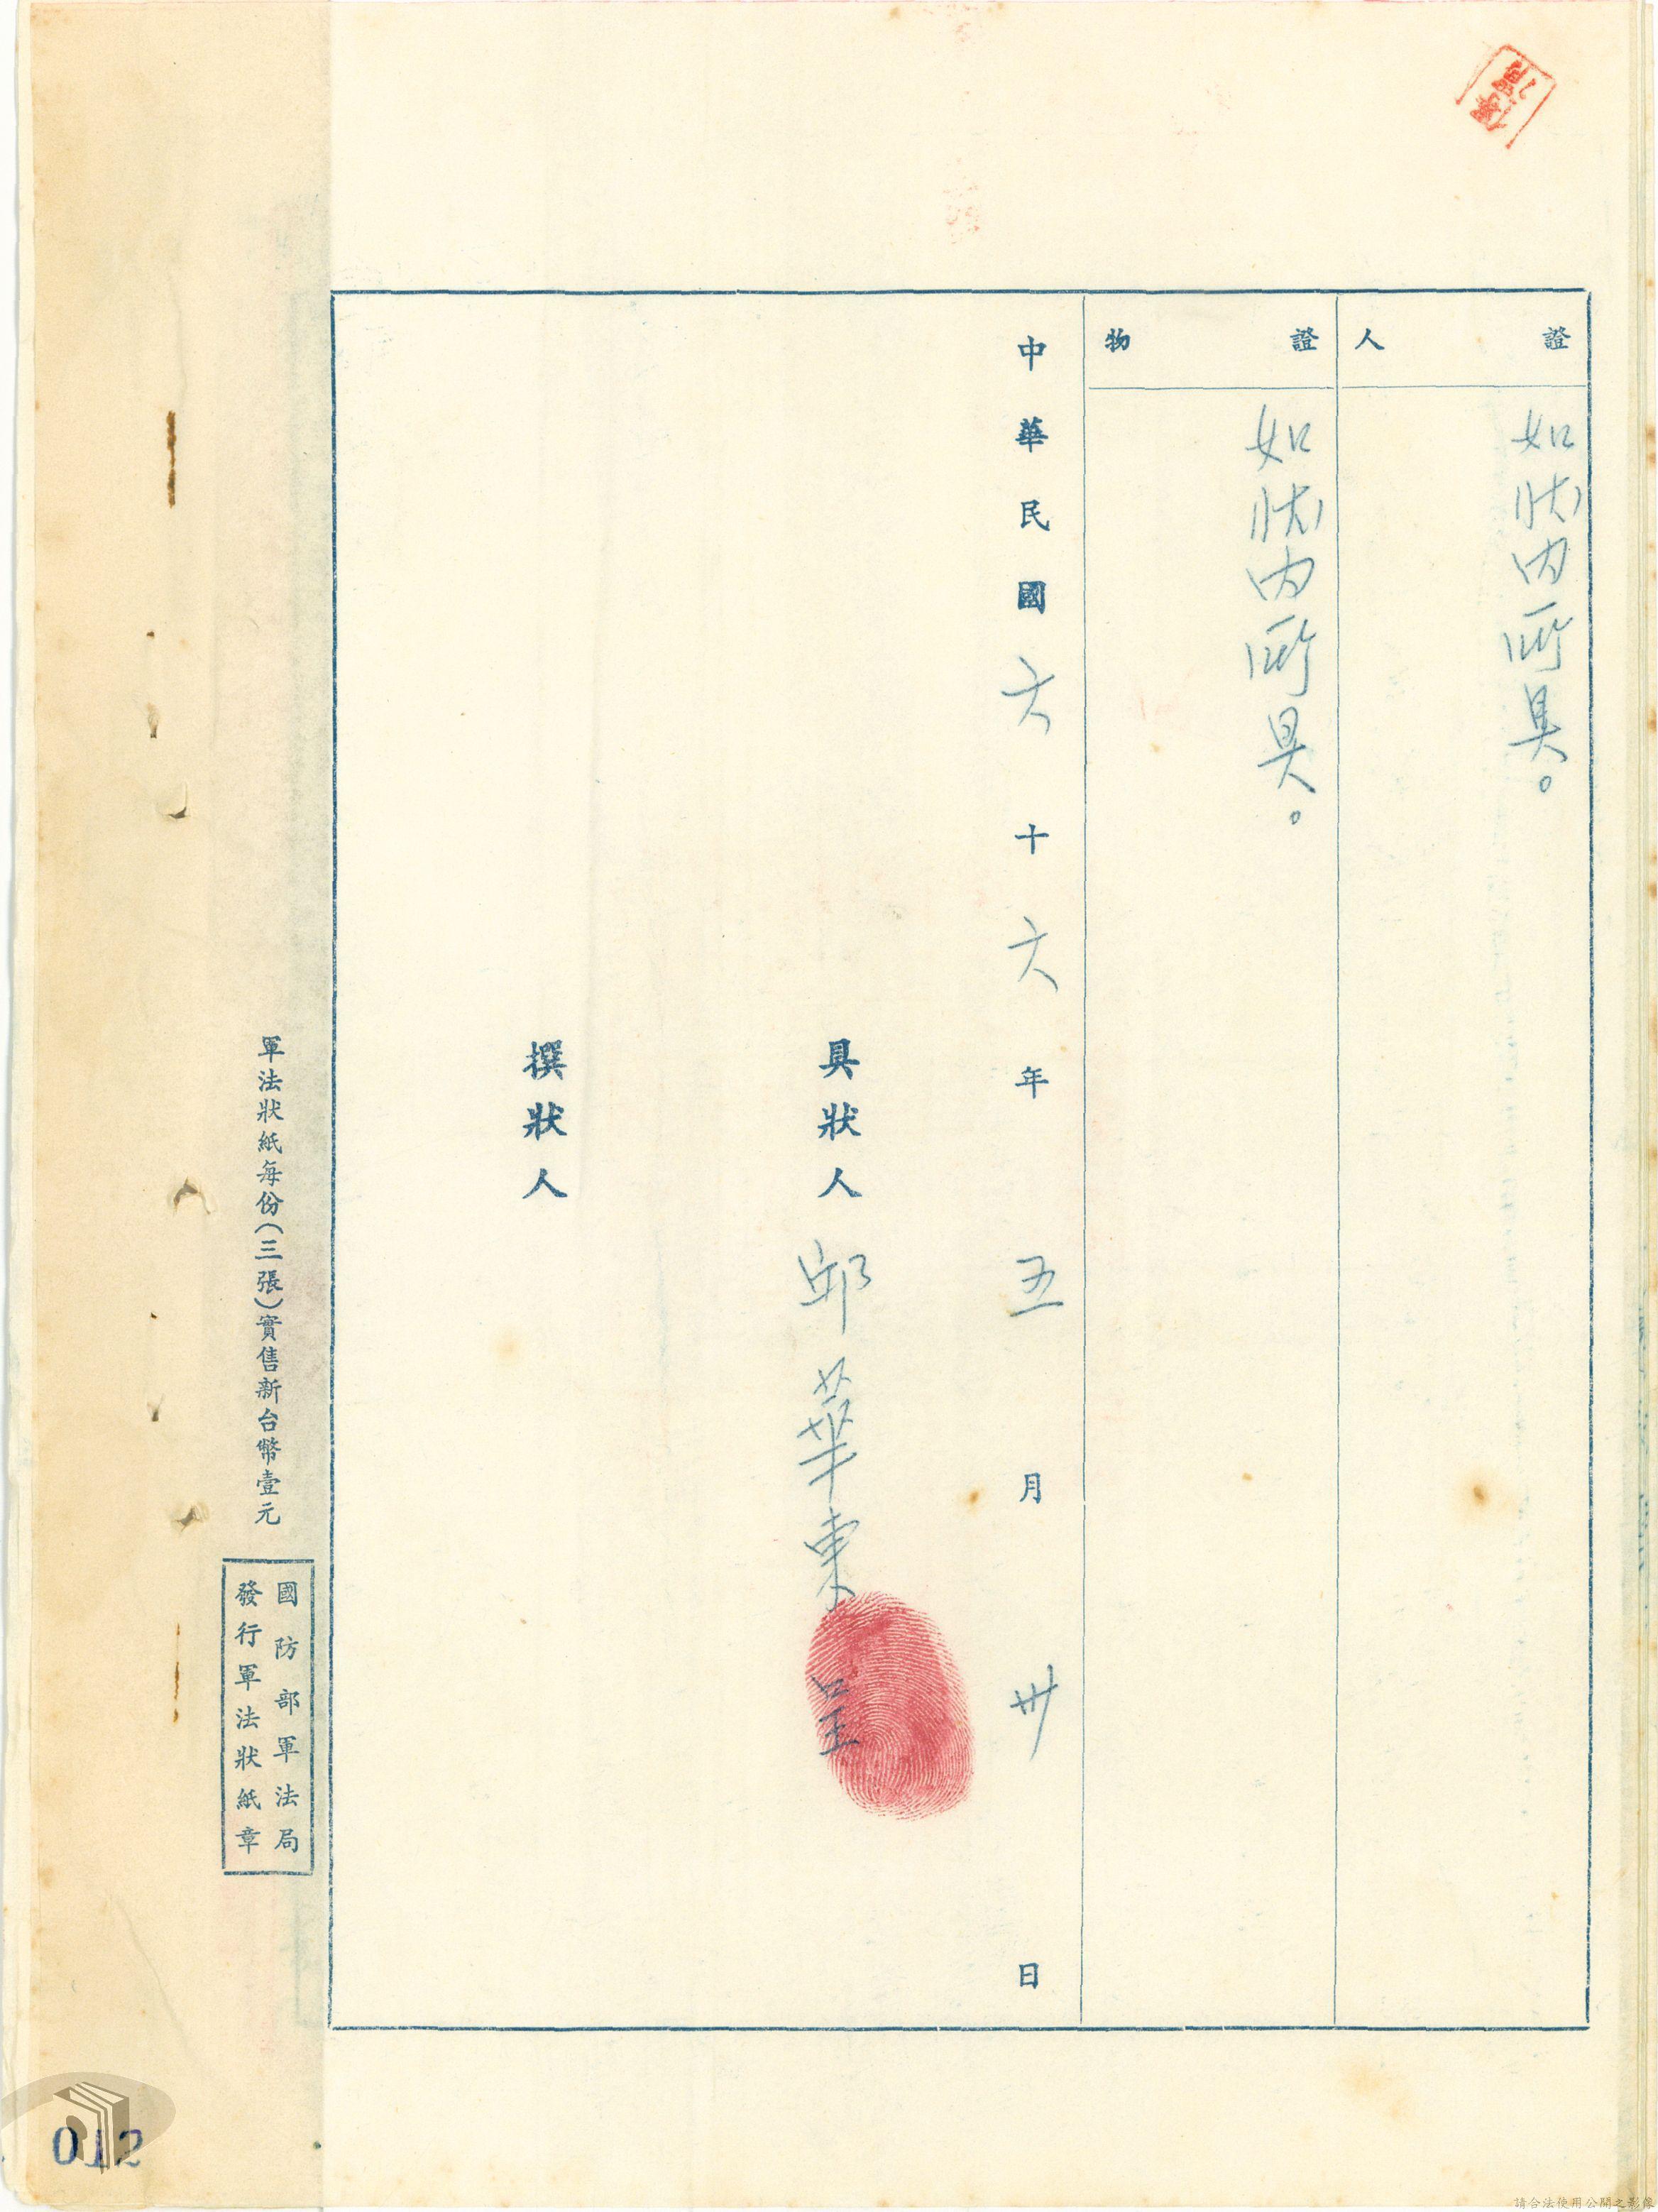 證人
如狀內所具。
證物
如狀內所具。
中華民國六十六年五月卅日
具狀人 邱華東 呈
撰狀人
軍法狀紙每份(三張)實售新台幣壹元
國防部軍法局
發行軍法狀紙章
012
請合法使用公開之影像